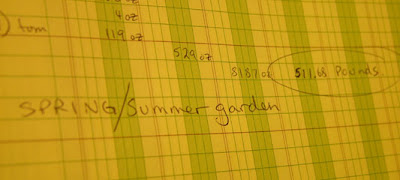 4 oz
tom
119 oz
529 oz
8187 oz 511.68 Pounds
SPRING/Summer garden